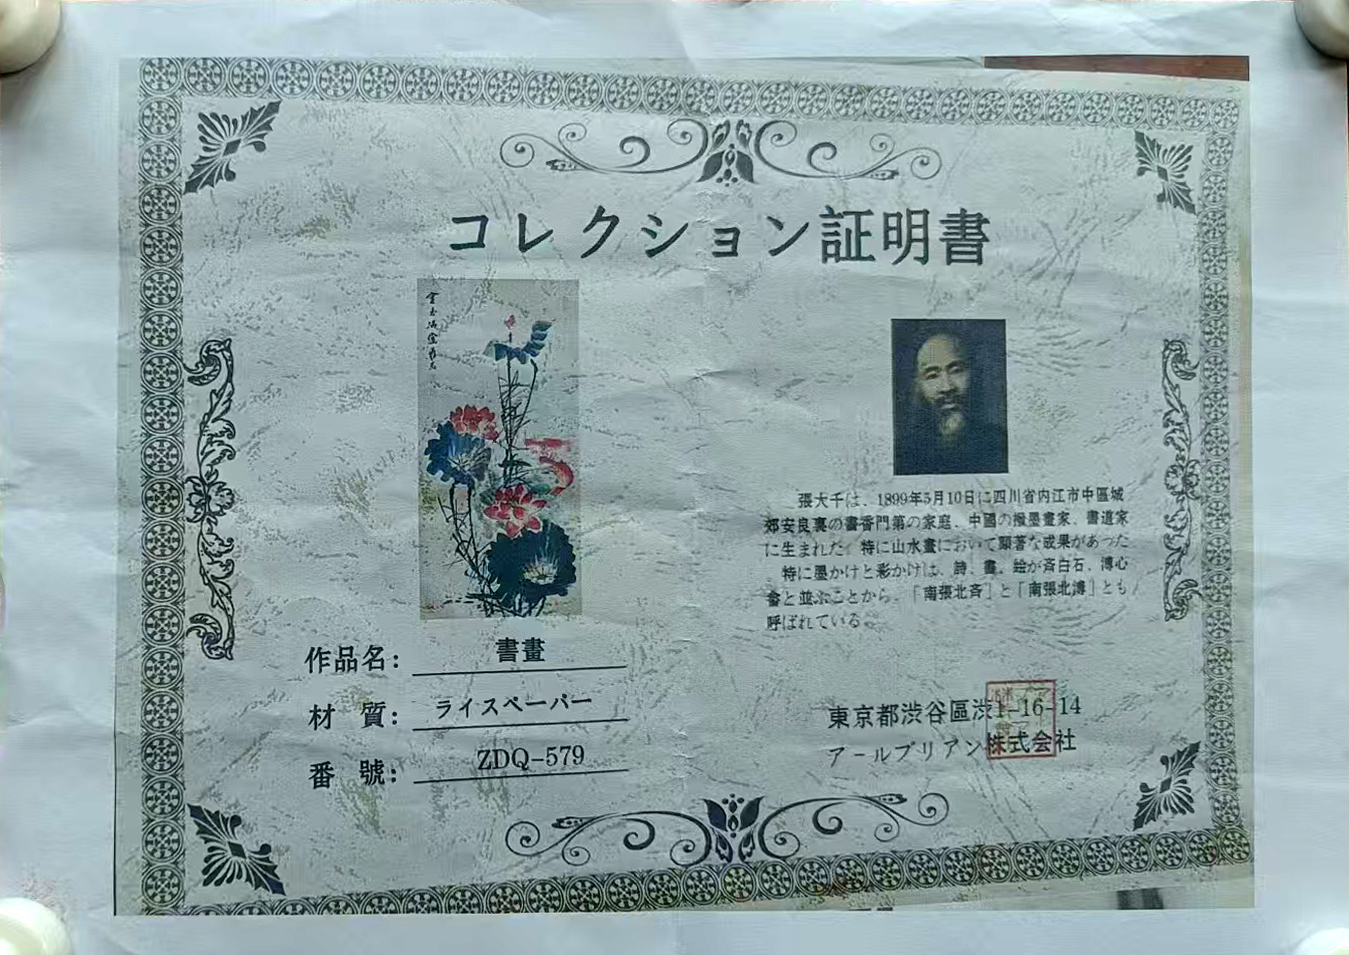 コレクション証明書
張大千は、1899年5月10日に四川省内江市中區城
郊安良裏の書香門第の家庭、中國の潑墨畫家、書道家
に生まれた。特に山水畫において顯著な成果があった
特に墨かけと彩かけは、詩、畫、絵が斉白石、溥心
畬と並ぶことから、「南張北斉」と「南張北溥」とも
呼ばれている。
作品名: 書畫
材 質: ライスペーパー
番 號: ZDQ-579
東京都渋谷區渋1-16-14
アールブリアン株式会社